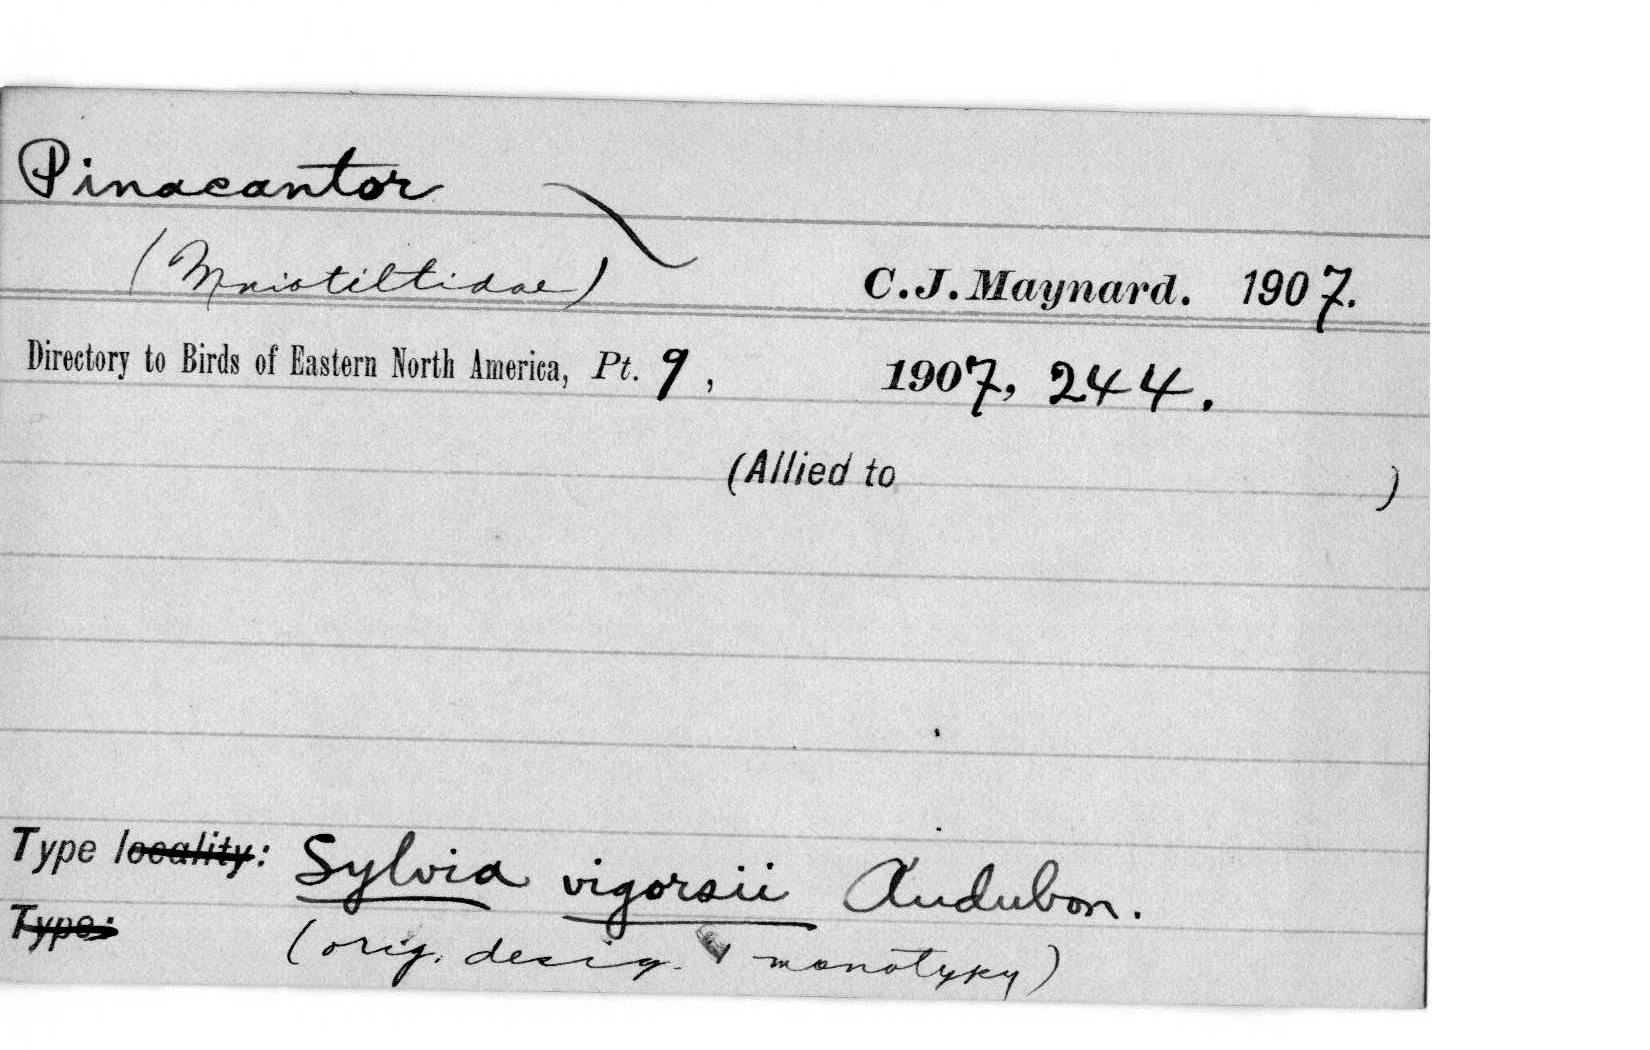 Pinacantor
(Mniotiltidae) C.J. Maynard. 1907.
Directory to Birds of Eastern North America, Pt. 9, 1907, 244.
(Allied to )
Type locality: Sylvia vigorsii Audubon.
Type:
(orig. desig. monotypy)